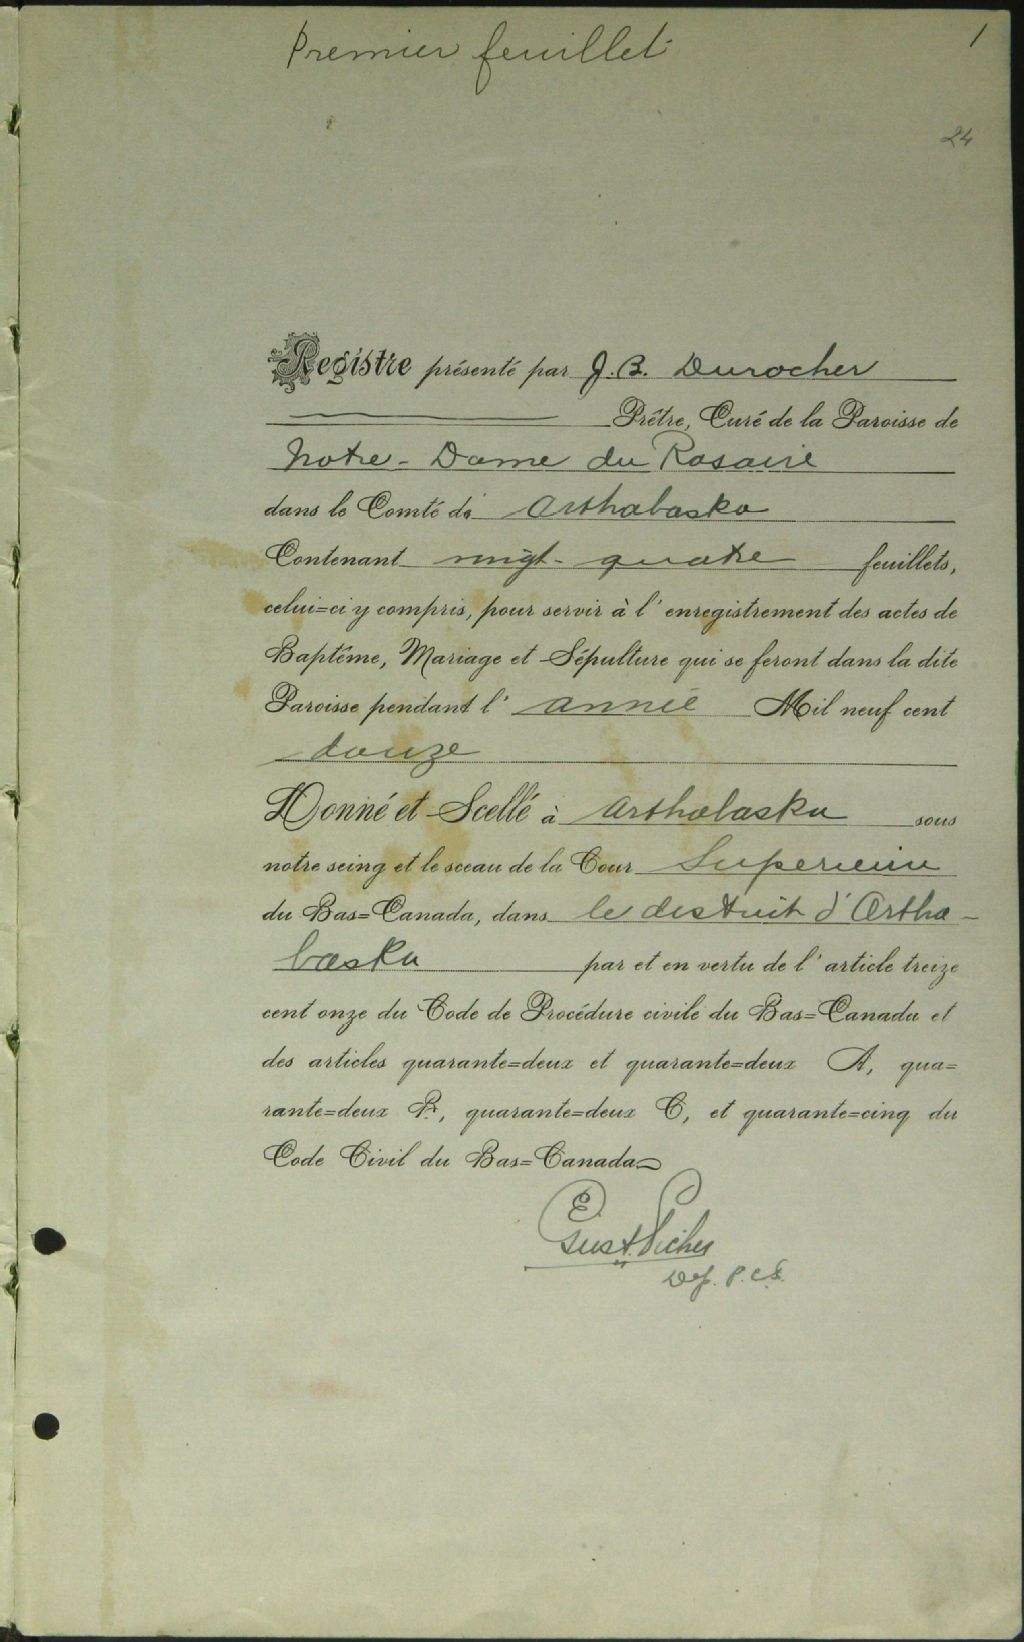 Premier feuillet
1
24
Registre présenté par J. B. Durocher
Prêtre, Curé de la Paroisse de
Notre-Dame du Rosaire
dans le Comté d' Arthabaska
Contenant vingt-quatre feuillets,
celui=ci y compris, pour servir à l'enregistrement des actes de
Baptême, Mariage et Sépulture qui se feront dans la dite
Paroisse pendant l' année Mil neuf cent
douze
Donné et Scellé à Arthabaska sous
notre seing et le sceau de la Cour Superieure
du Bas=Canada, dans le district d'Artha-
baska par et en vertu de l'article treize
cent onze du Code de Procédure civile du Bas=Canada et
des articles quarante=deux et quarante=deux A, qua=
rante=deux B, quarante=deux C, et quarante=cinq du
Code Civil du Bas=Canada
Dep. P. C. S.